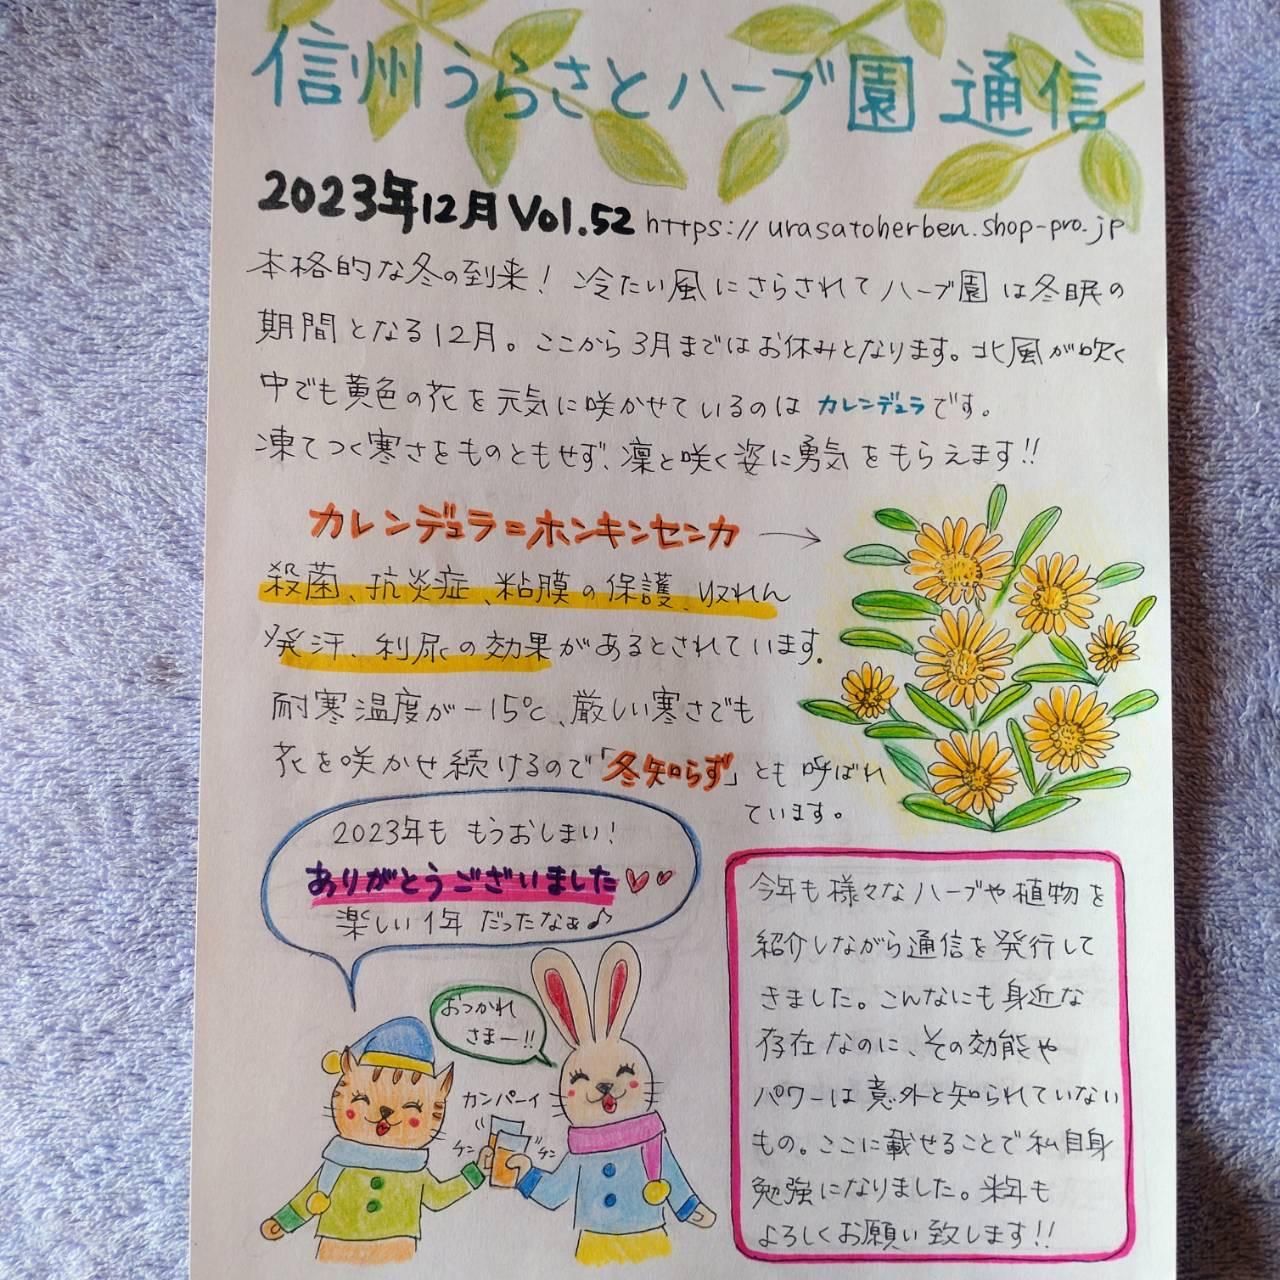 信州うらさとハーブ園 通信
2023年12月 Vol.52 https://urasatoherben.shop-pro.jp
本格的な冬の到来! 冷たい風にさらされてハーブ園は冬眠の
期間となる12月。ここから3月まではお休みとなります。北風が吹く
中でも黄色の花を元気に咲かせているのはカレンデュラです。
凍てつく寒さをものともせず、凛と咲く姿に勇気をもらえます!!
カレンデュラ=ホンキンセンカ →
殺菌、抗炎症、粘膜の保護、収れん
発汗、利尿の効果があるとされています。
耐寒温度が-15℃、厳しい寒さでも
花を咲かせ続けるので「冬知らず」とも呼ばれ
ています。
2023年も もうおしまい!
ありがとうございました♡♡
楽しい1年だったなぁ♪
おつかれ
さまー!!
カンパーイ
チン
チン
今年も様々なハーブや植物を
紹介しながら通信を発行して
きました。こんなにも身近な
存在なのに、その効能や
パワーは意外と知られていない
もの。ここに載せることで私自身
勉強になりました。来年も
よろしくお願い致します!!